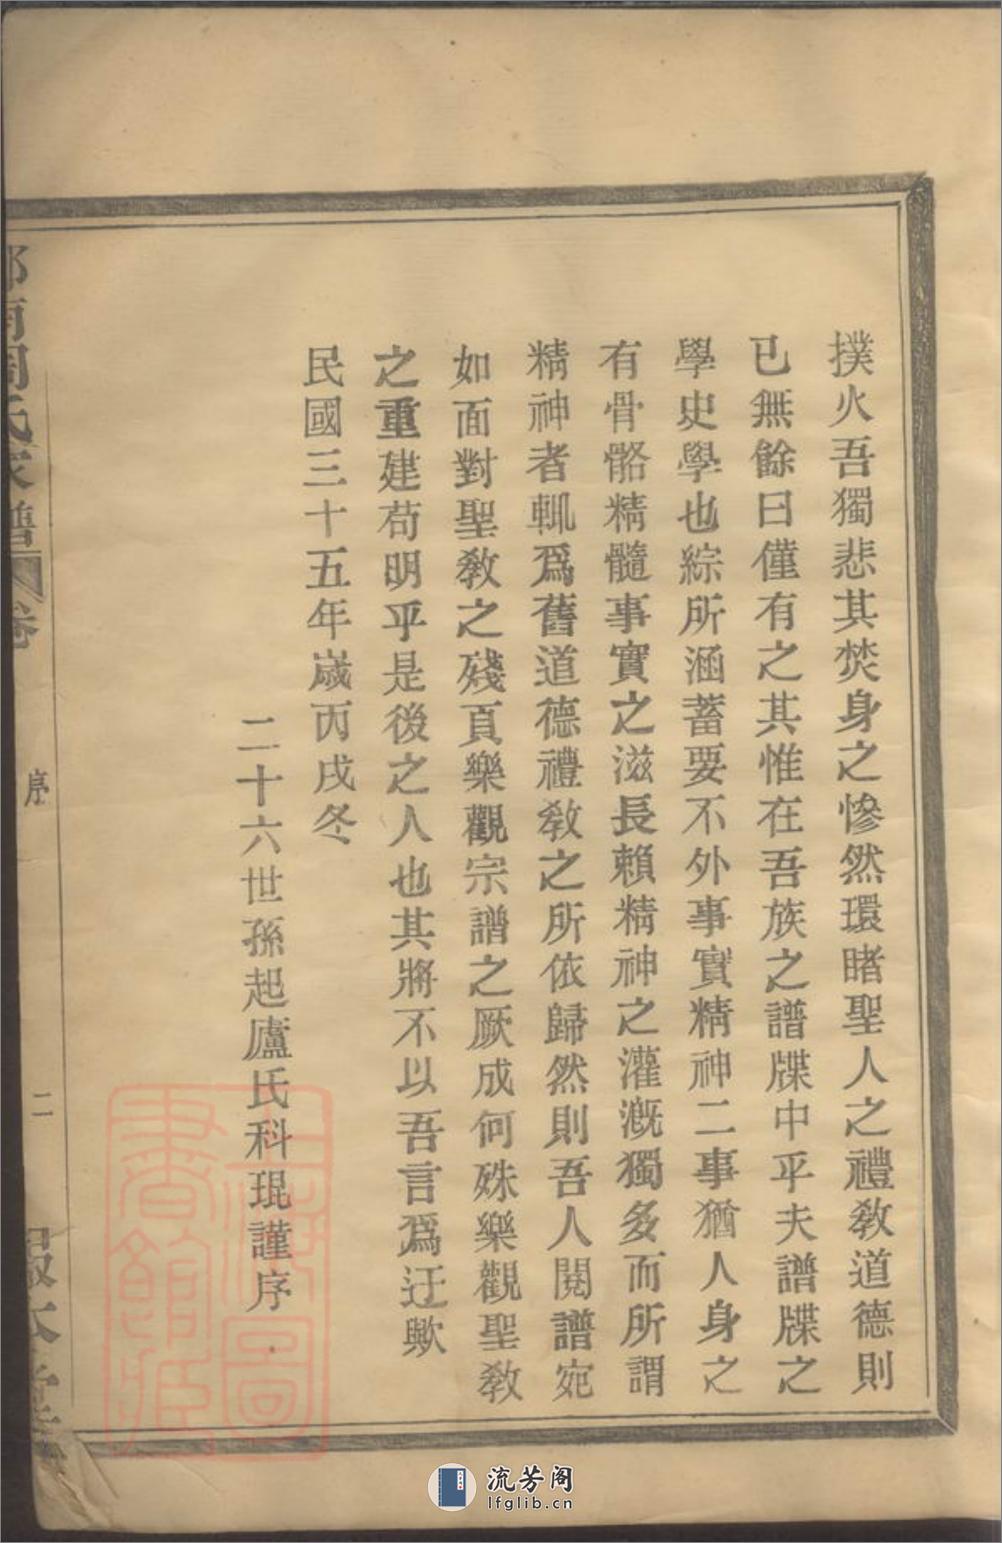 撲火吾獨悲其焚身之慘然環睹聖人之禮教道德則
已無餘曰僅有之其惟在吾族之譜牒中乎夫譜牒之
學史學也綜所涵蓄要不外事實精神二事猶人身之
有骨骼精髓事實之滋長賴精神之灌溉獨多而所謂
精神者輒爲舊道德禮教之所依歸然則吾人閱譜宛
如面對聖教之殘頁樂觀宗譜之厥成何殊樂觀聖教
之重建苟明乎是後之人也其將不以吾言爲迂歟
民國三十五年嵗丙戌冬
二十六世孫起廬氏科琨謹序
南周氏家譜
卷
序
二
報本堂
上海圖
書館藏
流芳阁
lfglib.cn